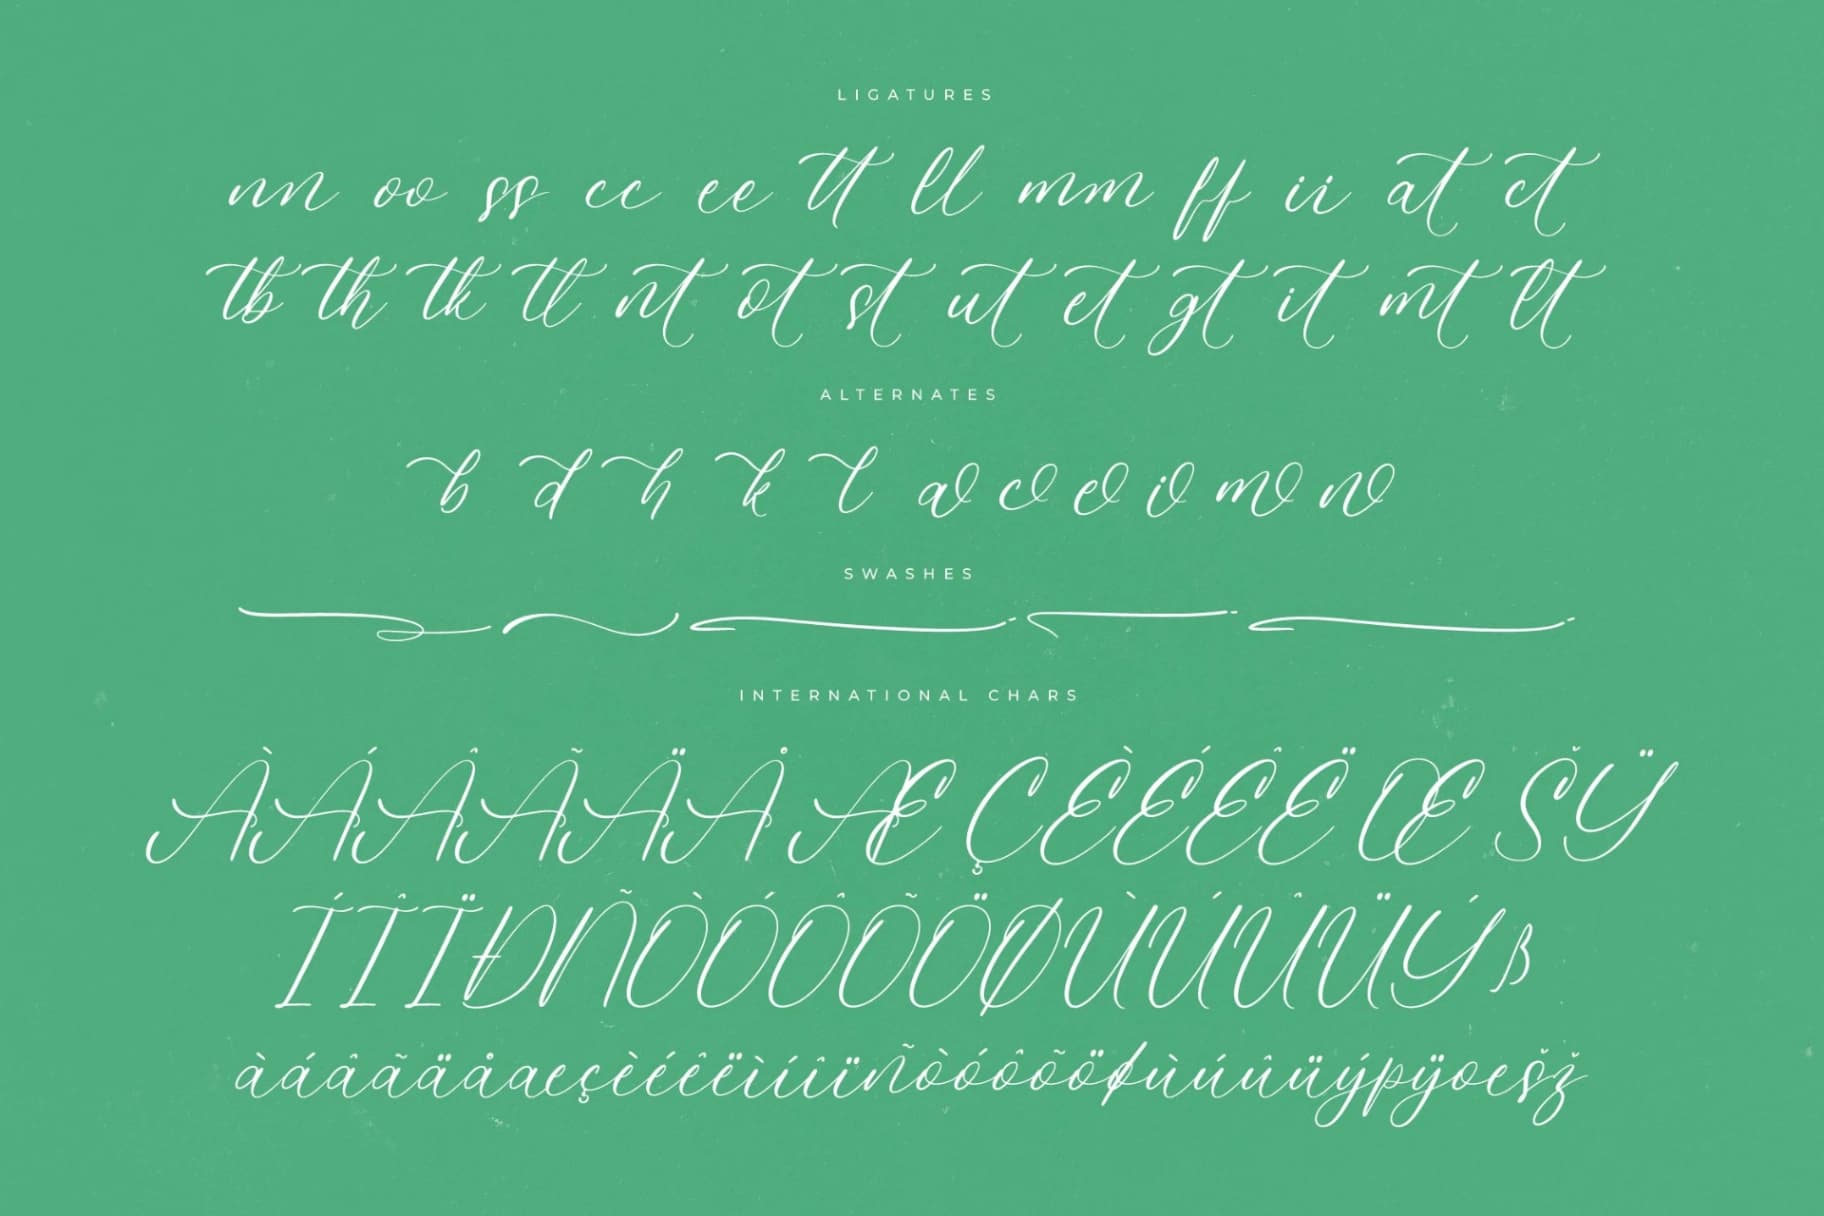 LIGATURES
nn oo ss cc ee tt ll mm ff ii at ct
tb th tk tl nt ot st ut et gt it mt lt
ALTERNATES
b d h k l a c e i m n
SWASHES
INTERNATIONAL CHARS
À Á Â Ã Ä Å Æ Ç È É Ê Ë Œ Š Ÿ
Í Î Ï Ð Ñ Ò Ó Ô Õ Ö Ø Ù Ú Û Ü Ý ß
à á â ã ä å æ ç è é ê ë ì í î ï ñ ò ó ô õ ö ø ù ú û ü ý þ ÿ œ š ž